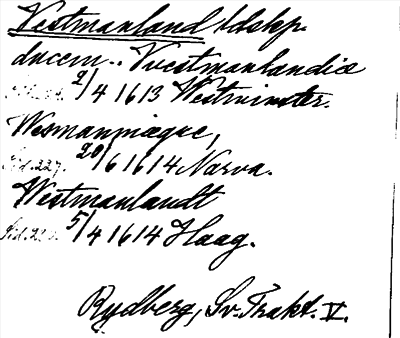 Vestmanland ldskp.
ducem.. Vuestmanlandiæ
2/4 1613 Westminster.
Wesmanmagne,
Sid. 227. 20/6 1614 Narva.
Westmanlandt
5/4 1614 Haag.
Rydberg, Sv. Trakt. V.